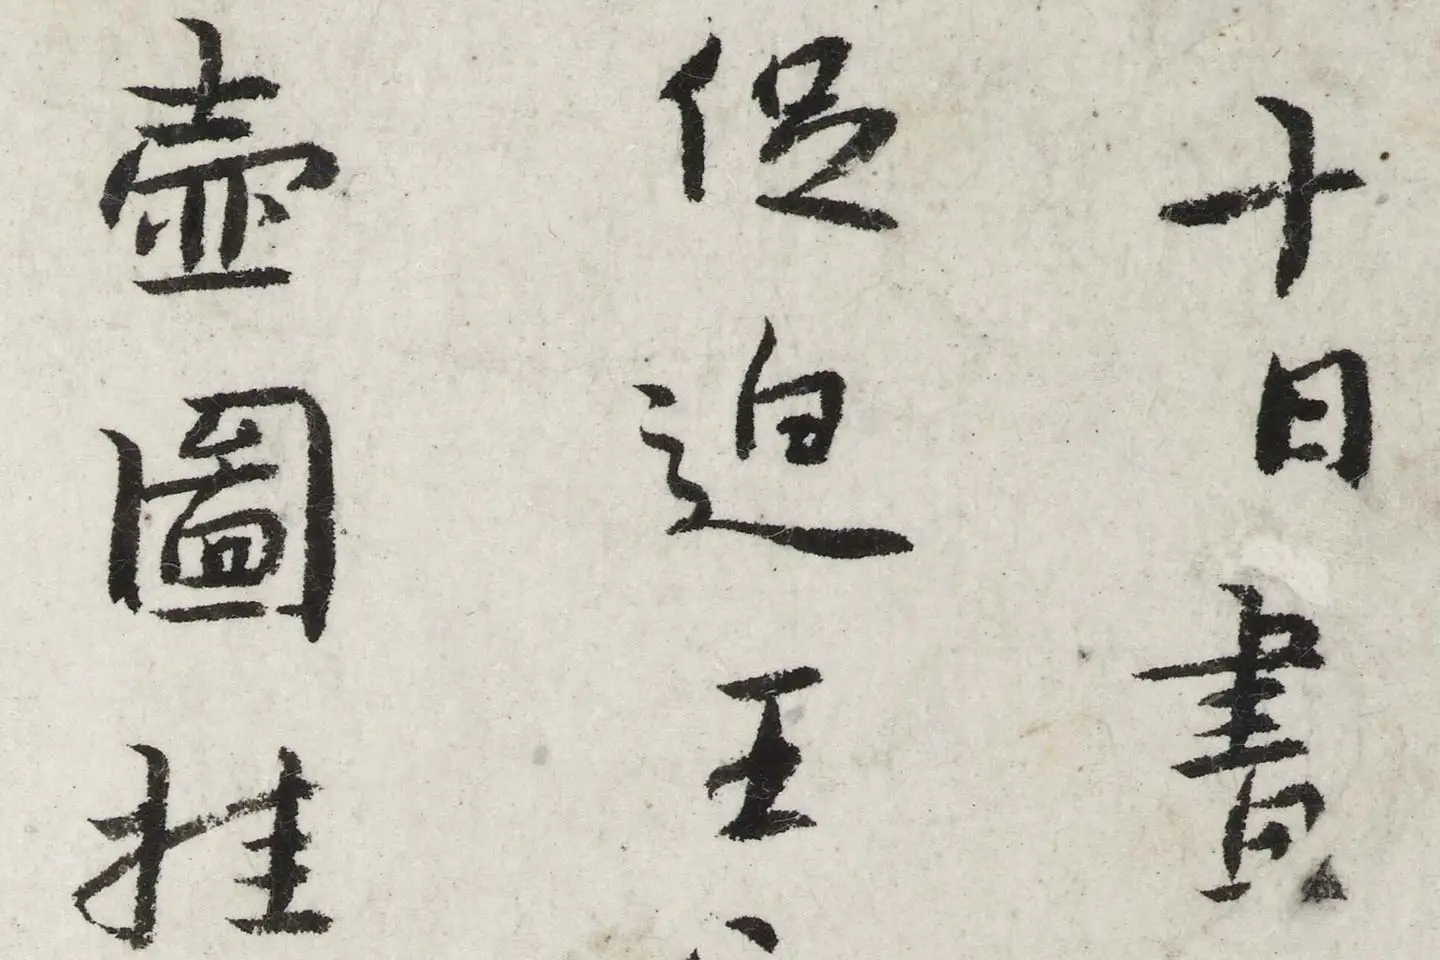 十日畫
促迫王
壺圖挂